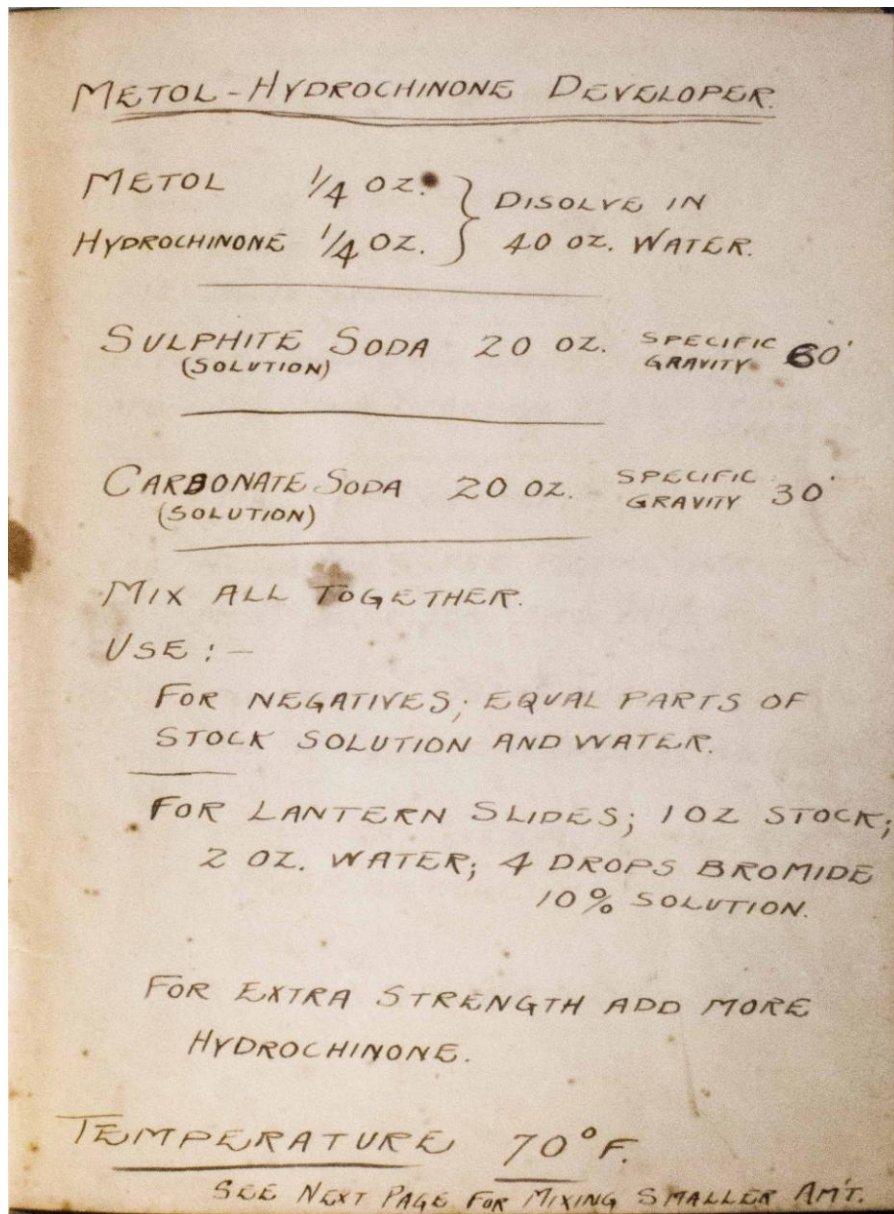 METOL-HYDROCHINONE DEVELOPER.
METOL 1/4 OZ. } DISOLVE IN
HYDROCHINONE 1/4 OZ. } 40 OZ. WATER.
SULPHITE SODA 20 OZ. SPECIFIC GRAVITY 60°
(SOLUTION)
CARBONATE SODA 20 OZ. SPECIFIC GRAVITY 30°
(SOLUTION)
MIX ALL TOGETHER.
USE:—
FOR NEGATIVES; EQUAL PARTS OF
STOCK SOLUTION AND WATER.
FOR LANTERN SLIDES; 1 OZ STOCK;
2 OZ. WATER; 4 DROPS BROMIDE
10% SOLUTION.
FOR EXTRA STRENGTH ADD MORE
HYDROCHINONE.
TEMPERATURE 70°F.
SEE NEXT PAGE FOR MIXING SMALLER AM'T.